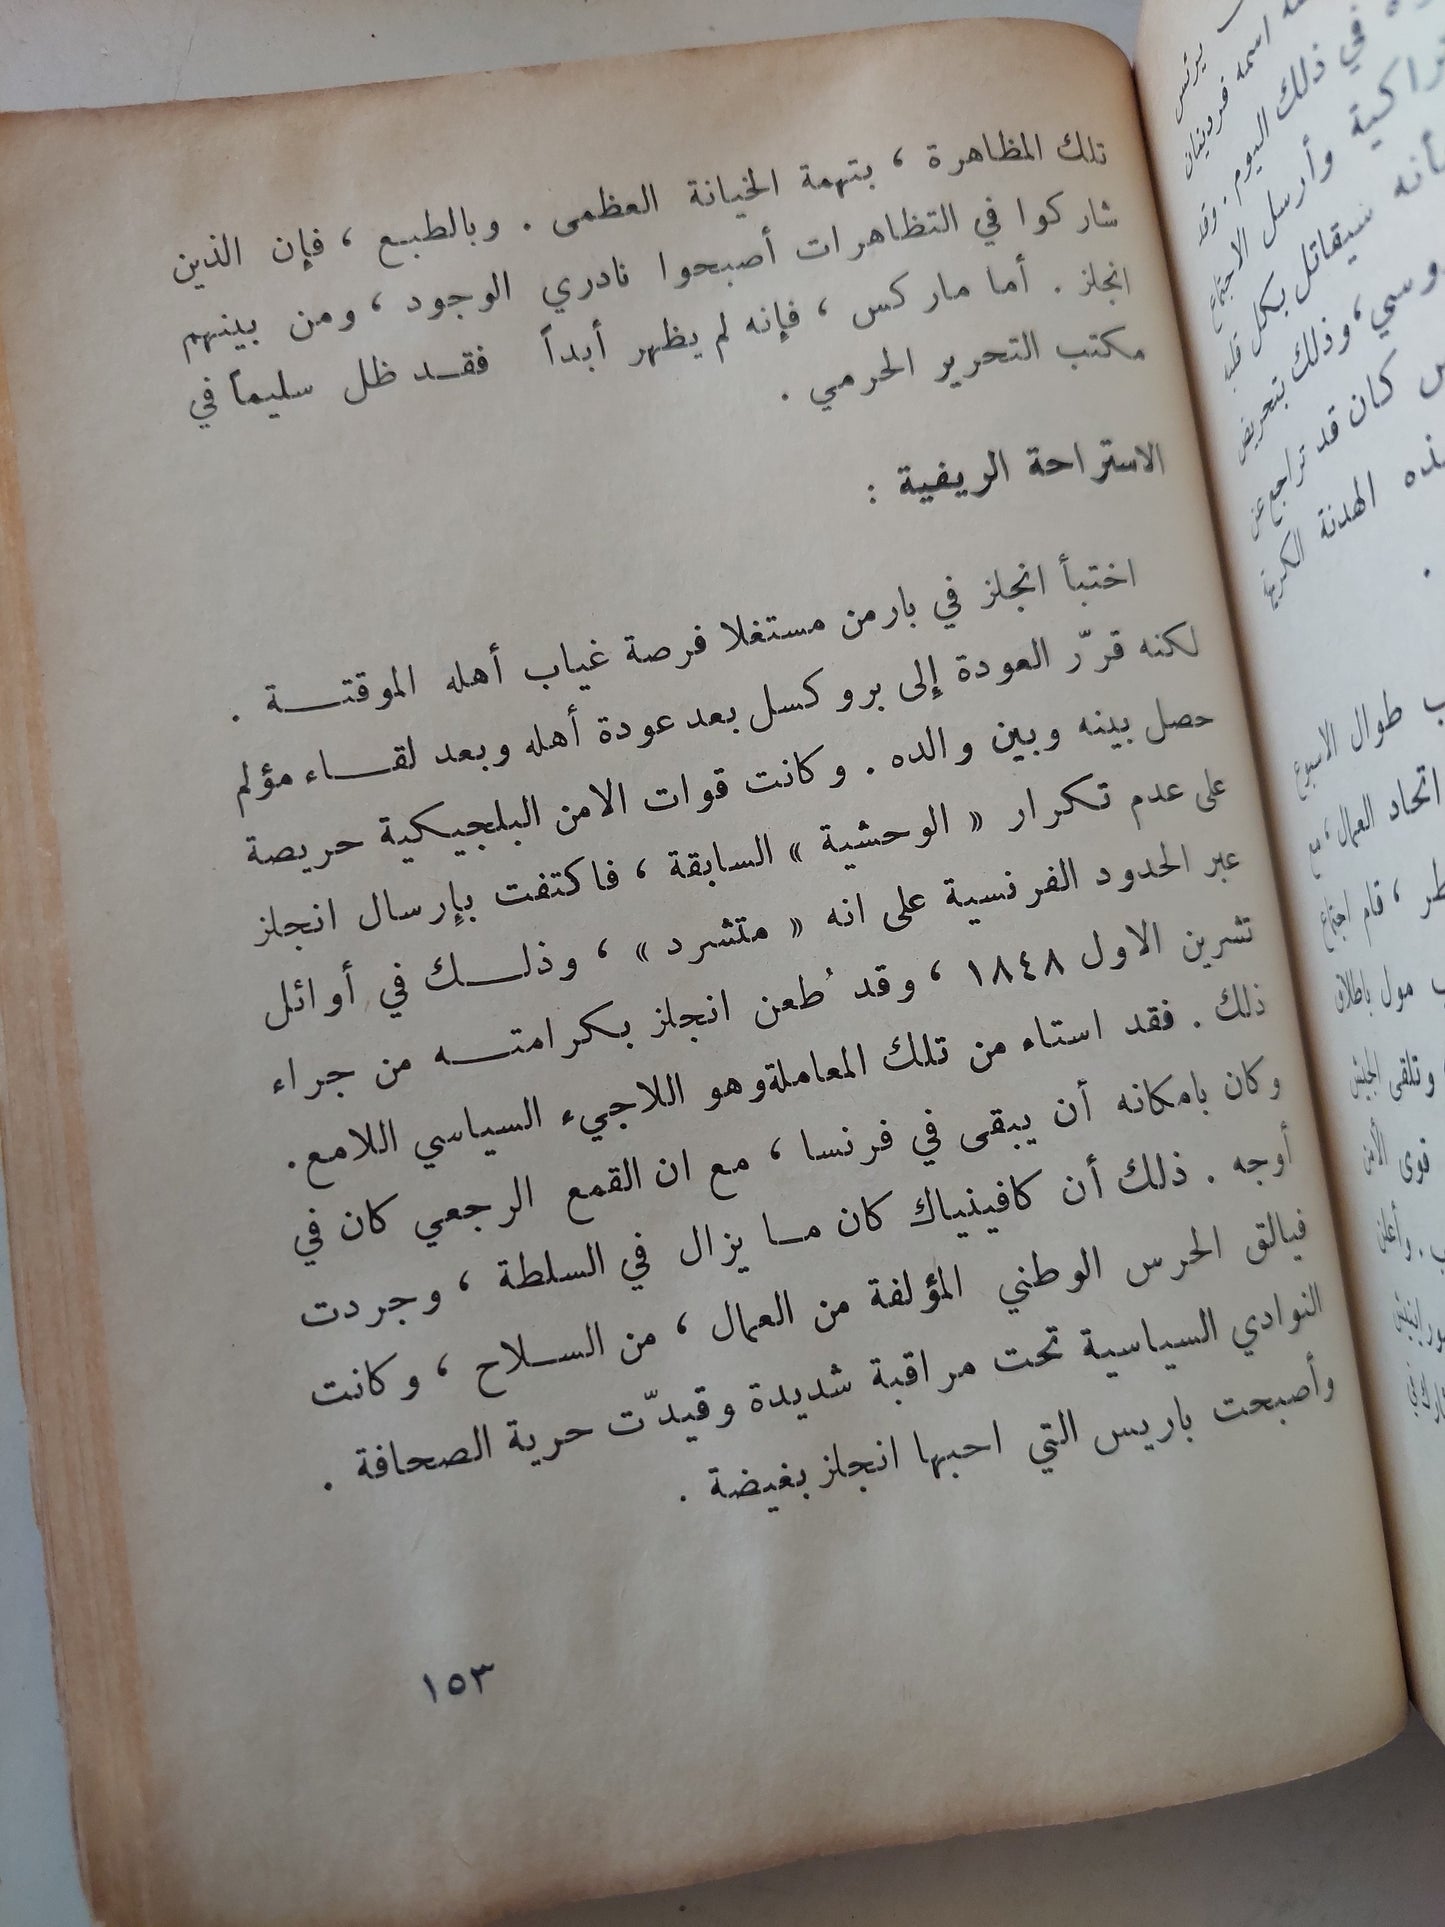 تلك المظاهرة ، بتهمة الخيانة العظمى . وبالطبع ، فإن الذين
شاركوا في التظاهرات أصبحوا نادري الوجود ، ومن بينهم
انجلز . أما ماركس ، فإنه لم يظهر أبداً فقد ظل سليماً في
مكتب التحرير الحرمي .
الاستراحة الريفية :
اختبأ انجلز في بارمن مستغلا فرصة غياب أهله الموقتة .
لكنه قرّر العودة إلى بروكسل بعد عودة أهله وبعد لقاء مؤلم
حصل بينه وبين والده . وكانت قوات الامن البلجيكية حريصة
على عدم تكرار « الوحشية » السابقة ، فاكتفت بإرسال انجلز
عبر الحدود الفرنسية على انه « متشرد » ، وذلك في أوائل
تشرين الاول ١٨٤٨ ، وقد ُطعن انجلز بكرامته من جراء
ذلك . فقد استاء من تلك المعاملة وهو اللاجيء السياسي اللامع .
وكان بامكانه أن يبقى في فرنسا ، مع ان القمع الرجعي كان في
أوجه . ذلك أن كافينياك كان ما يزال في السلطة ، وجردت
فيالق الحرس الوطني المؤلفة من العمال ، من السلاح ، وكانت
النوادي السياسية تحت مراقبة شديدة وقيدّت حرية الصحافة .
وأصبحت باريس التي احبها انجلز بغيضة .
١٥٣
يرئس
اسمه فردينان
في ذلك اليوم . وقد
وأرسل الاجتماع
سيقاتل بكل قلبه
وذلك بتحريض
كان قد تراجع عن
الهدنة الكريهة
طوال الاسبوع
اتحاد العمال ، مع
، قام اجتماع
مول باطلاق
وتلقى الجيش
قوى الأمن
. وأعلن